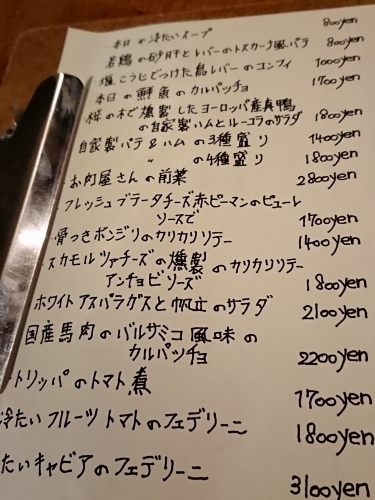 ・本日の冷たいスープ 800yen
若鶏の砂肝とレバーのトスカーナ風パテ 800yen
・塩こうじでつけた鳥レバーのコンフィ 1000yen
・本日の鮮魚のカルパッチョ 1700yen
・桜の木で燻製したヨーロッパ産真鴨
の自家製ハムとルーコラのサラダ 1800yen
自家製パテ&ハムの3種盛り 1400yen
〃 の4種盛り 1800yen
・お肉屋さんの前菜 2800yen
フレッシュブラータチーズ赤ピーマンのピューレ
ソースで 1700yen
・骨つきボンジリのカリカリソテー 1400yen
・スカモルツァチーズの燻製のカリカリソテー
アンチョビソーズ 1800yen
ホワイトアスパラグスと帆立のサラダ 2100yen
国産馬肉のバルサミコ風味の
カルパッチョ 2200yen
トリッパのトマト煮 1700yen
冷たいフルーツトマトのフェデリーニ 1800yen
たいキャビアのフェデリーニ 3100yen